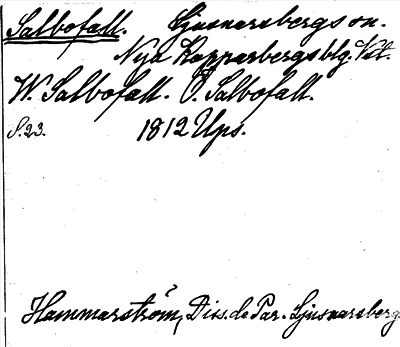 Salbofall. Ljusnarsbergs sn.
Nya Kopparbergs blg. Vstm.
W. Salbofall. Ö. Salbofall.
S. 23. 1812 Ups.
Hammarström, Diss. de Par. Ljusnarsberg